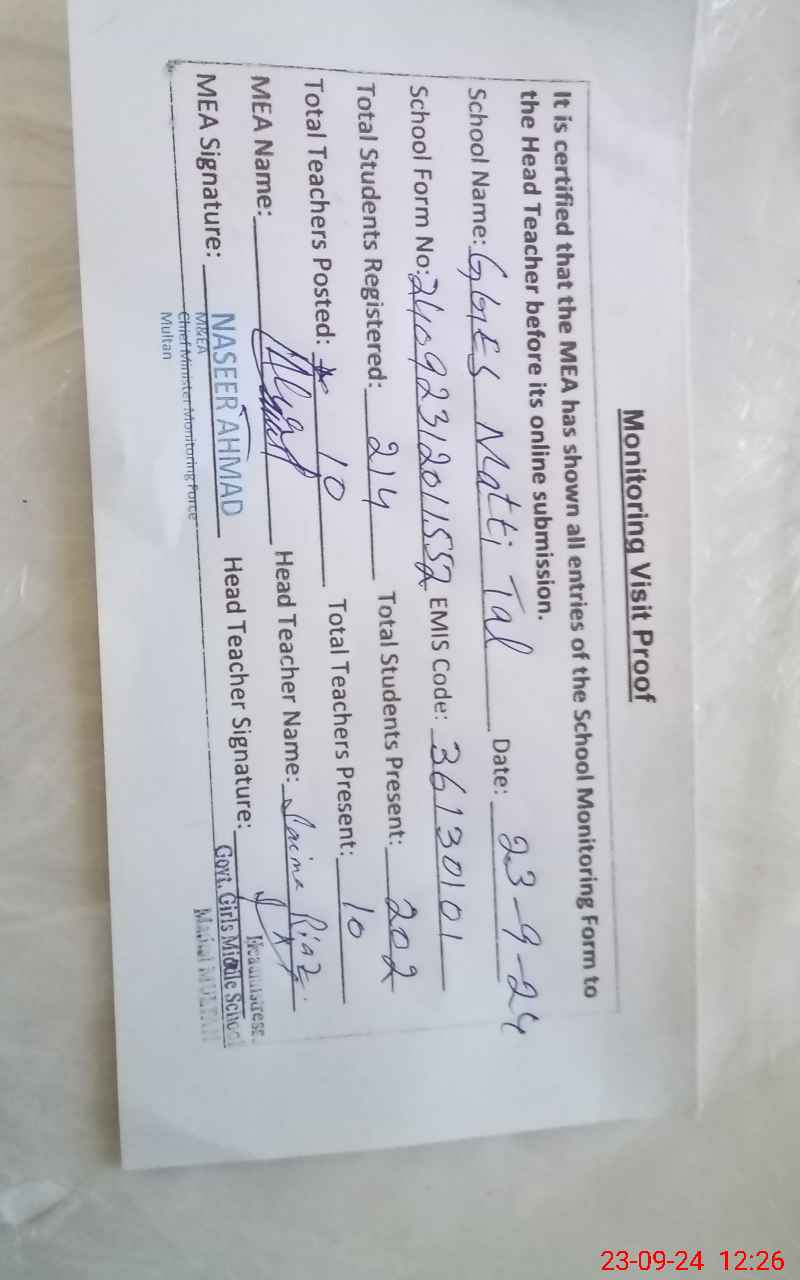 Monitoring Visit Proof
It is certified that the MEA has shown all entries of the School Monitoring Form to
the Head Teacher before its online submission.
School Name: GGES Matti Tal Date: 23-9-24
School Form No: 24092312011552 EMIS Code: 36130101
Total Students Registered: 214 Total Students Present: 202
Total Teachers Posted: 10 Total Teachers Present: 10
MEA Name: Head Teacher Name: Saima Riaz
MEA Signature: NASEER AHMAD Head Teacher Signature:
M&EA
Chief Minister Monitoring Force
Multan
Headmistress
Govt. Girls Middle School
MULTAN
23-09-24 12:26